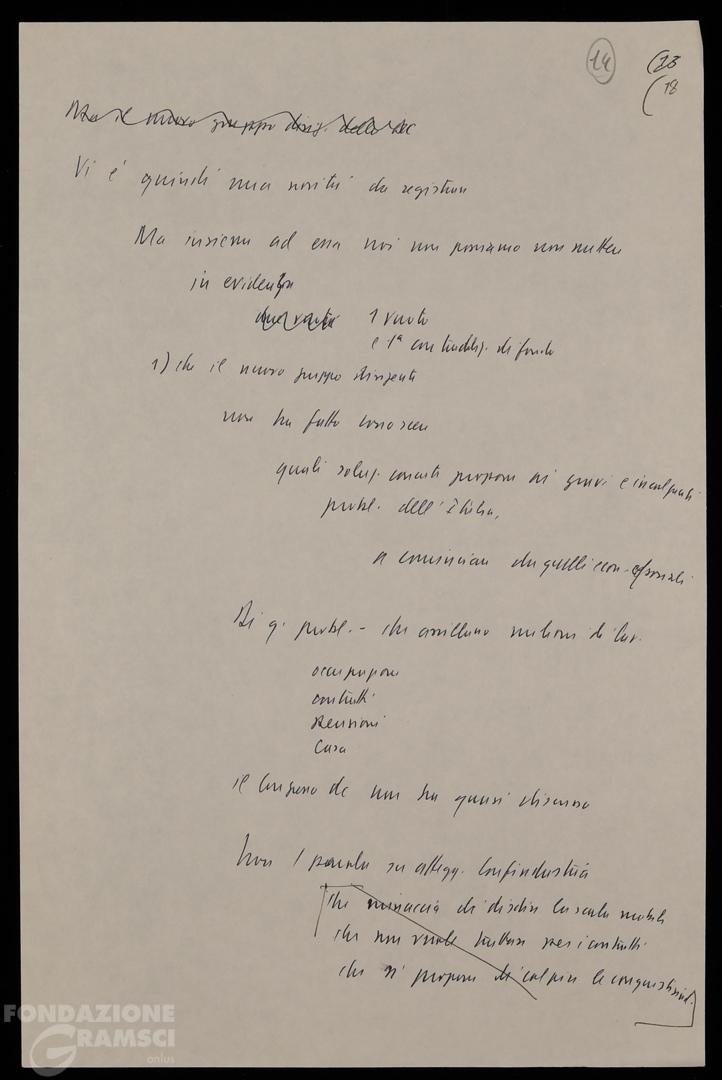 14
(13
(18
Ma il nuovo gruppo dirig. della DC
Vi è quindi una novità da registrare
Ma insieme ad essa noi non possiamo non mettere
in evidenza
due vuoti 1 vuoto
e 1ª contraddiz. di fondo
1) che il nuovo gruppo dirigente
non ha fatto conoscere
quali soluz. concrete propone ai gravi e incalzanti
probl. dell'Italia,
a cominciare da quelli econ.-sociali
Di q. probl. - che assillano milioni di lav.
occupazione
contratti
pensioni
casa
il Congresso dc non ha quasi discusso
Non 1 parola su attegg. Confindustria
che minaccia di disdire la scala mobile
che non vuole trattare per i contratti
che si propone di colpire le conquiste sind.
FONDAZIONE
GRAMSCI
onlus